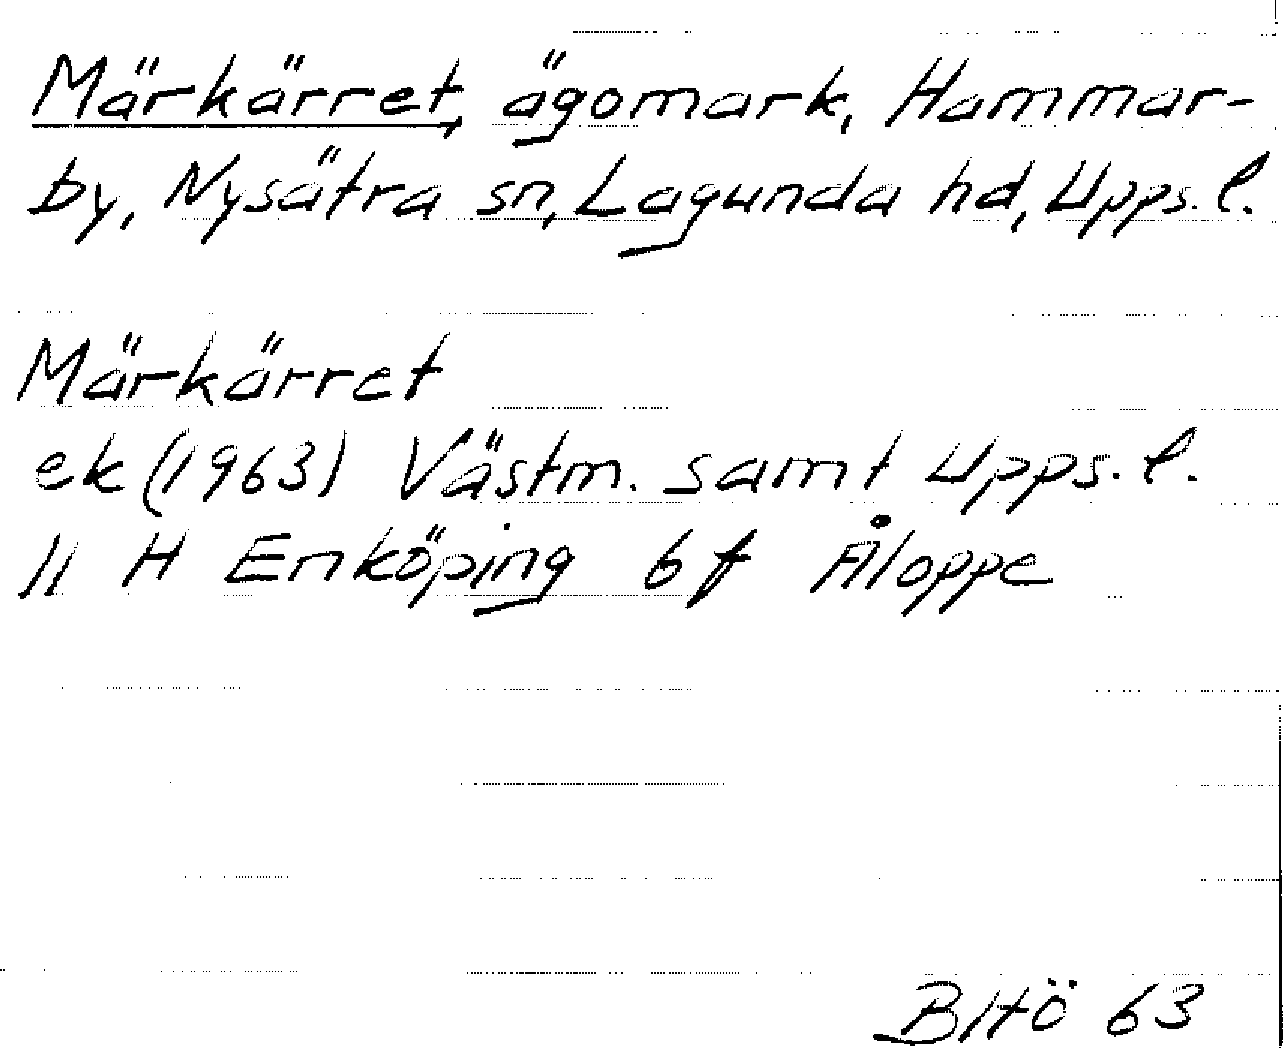 Märkärret, ägomark, Hammar-
by, Nysätra sn, Lagunda hd, Upps. l.
Märkärret
ek (1963) Västm. samt Upps. l.
11 H Enköping 6 f Åloppe
BHÖ 63